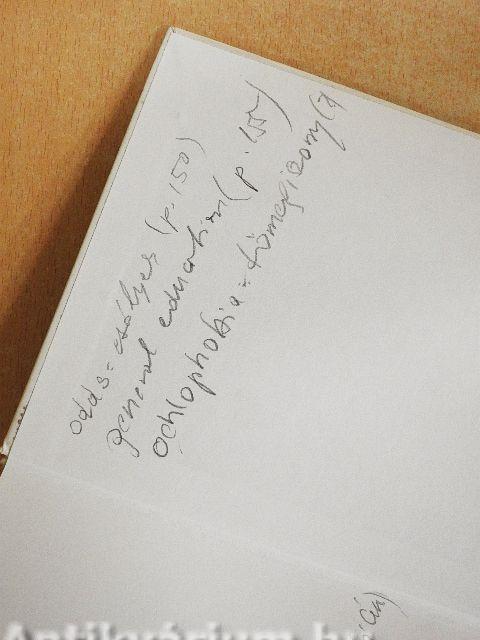 odds = esélyes (p. 150)
general education (p. 155)
ochlophobia = tömegiszony (
Antikvárium.hu